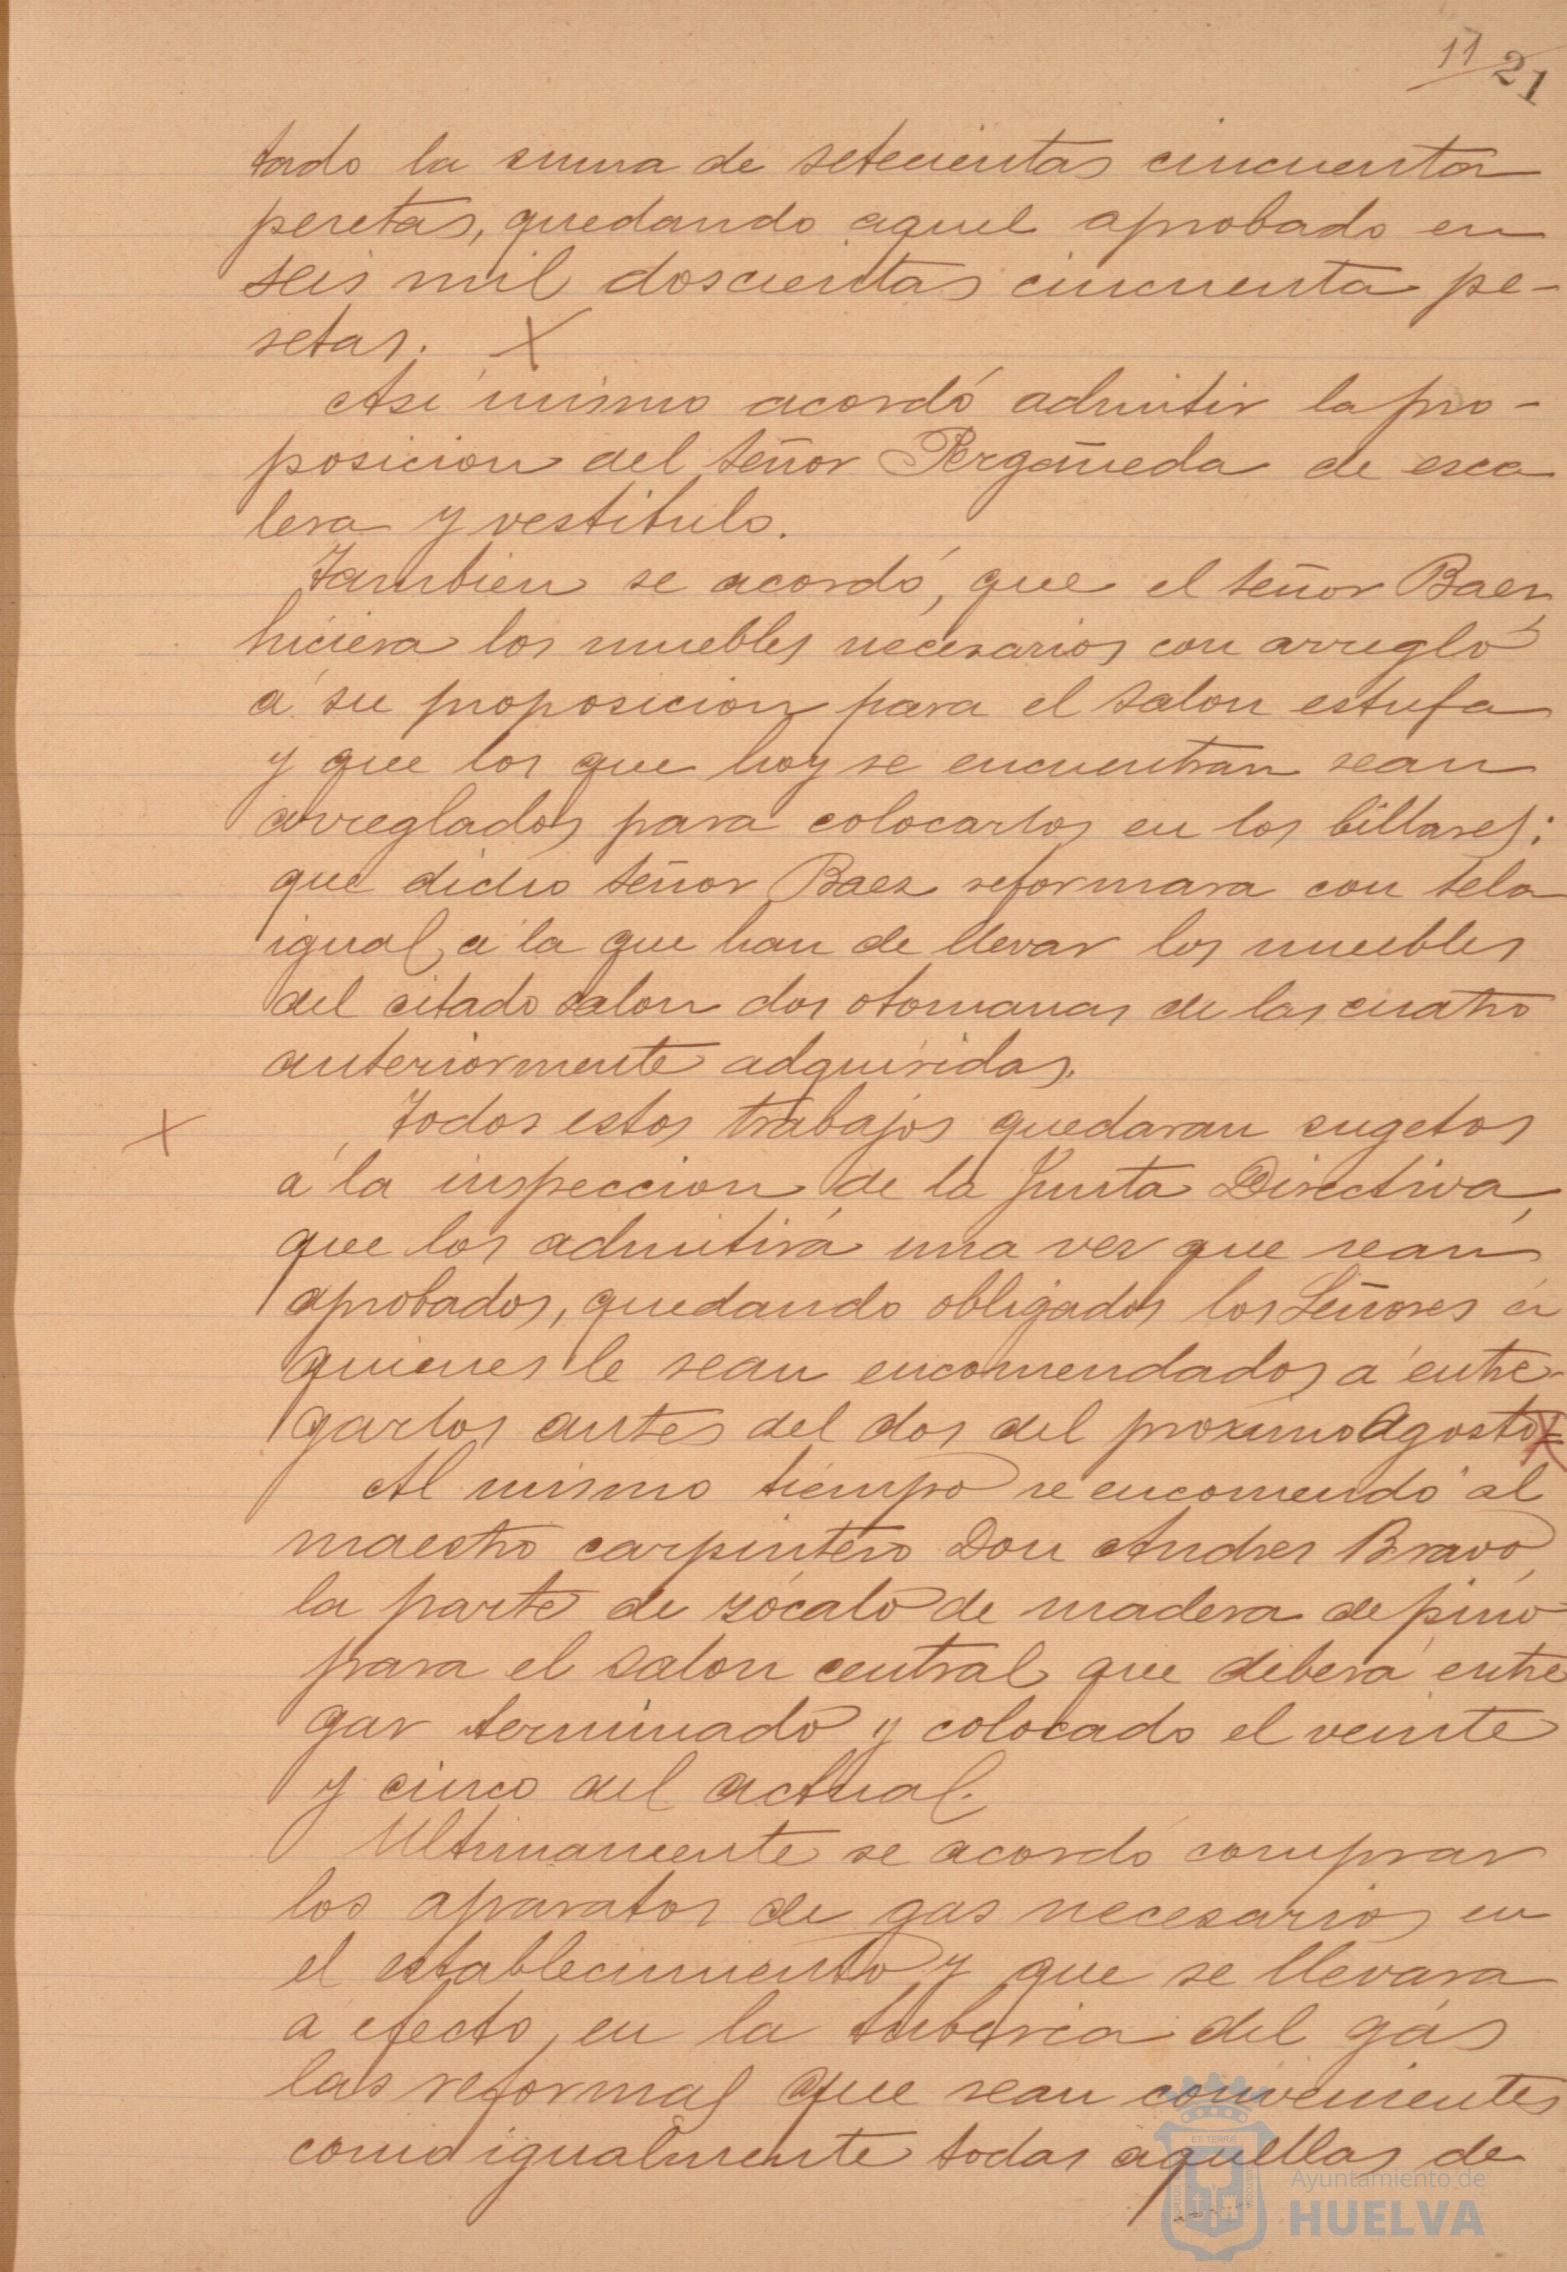 11 21
tado la suma de setecientas cincuenta
pesetas, quedando aquel aprobado en
seis mil doscientas cincuenta pe-
setas. X
Asi mismo acordó admitir la pro-
posicion del señor Pergañeda de esca
lera y vestibulo.
Tambien se acordó, que el señor Baez
hiciera los muebles necesarios con arreglo
á su proposicion para el salon estufa
y que los que hoy se encuentran sean
arreglados para colocarlos en los billares;
que dicho señor Baez reformara con tela
igual á la que han de llevar los muebles
del citado salon dos otomanas de las cuatro
anteriormente adquiridas.
X Todos estos trabajos quedaran sugetos
á la inspeccion de la Junta Directiva,
que los admitirá una vez que sean
aprobados, quedando obligados los Señores á
quienes le sean encomendados á entre-
garlos antes del dos del proximo Agosto= X
Al mismo tiempo se encomendó al
maestro carpintero Don Andres Bravo,
la parte de zócalo de madera de pino
para el salon central que deberá entre
gar terminado y colocado el veinte
y cinco del actual.
Ultimamente se acordó comprar
los aparatos de gas necesarios en
el establecimiento y que se llevara
á efecto, en la tuberia del gás
las reformas que sean convenientes
como igualmente todas aquellas de
Ayuntamiento de
HUELVA